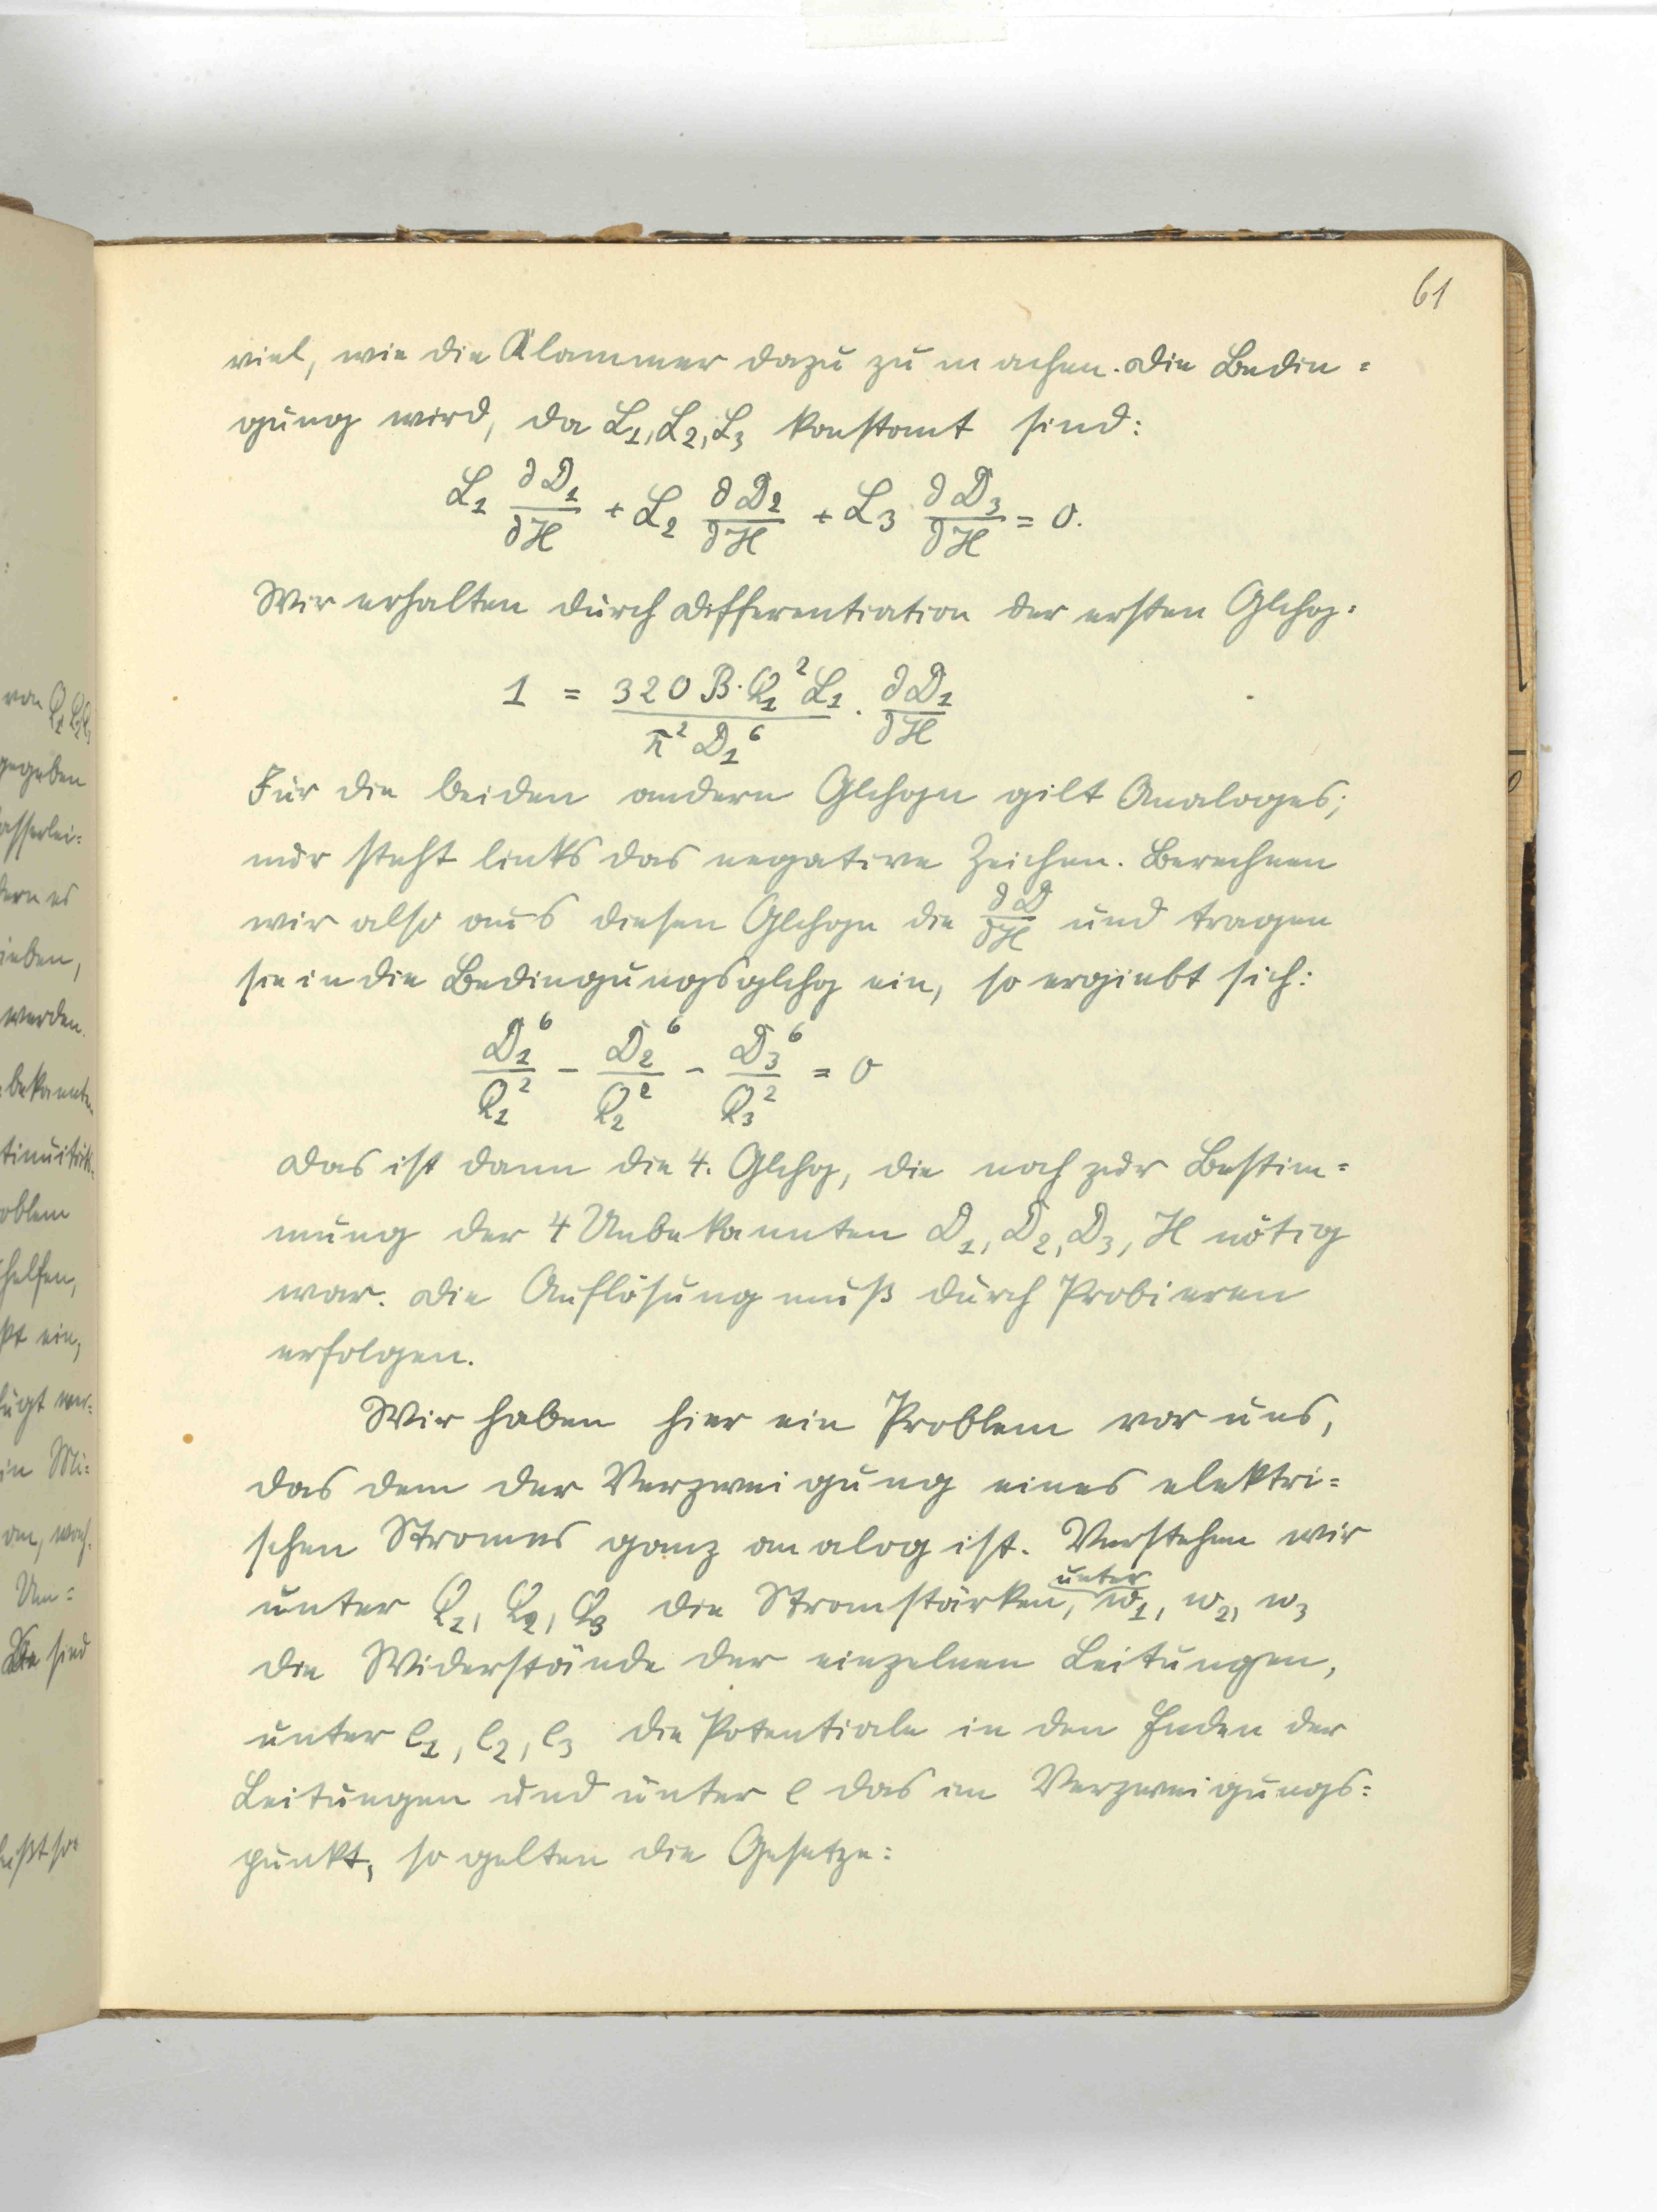 61
viel, wie die Klammer dazu zu machen. Die Bedin=
gung wird, da L₁, L₂, L₃ konstant sind:
L₁ ∂D₁/∂H + L₂ ∂D₂/∂H + L₃ ∂D₃/∂H = 0.
Wir erhalten durch Differentiation der ersten Glchg.
1 = 320 B·Q₁² L₁ / π² D₁⁶ · ∂D₁/∂H
Für die beiden andern Glchgn gilt Analoges;
nur steht links das negative Zeichen. Berechnen
wir also aus diesen Glchgn die ∂D/∂H und tragen
sie in die Bedingungsglchg ein, so ergiebt sich:
D₁⁶/Q₁² − D₂⁶/Q₂² − D₃⁶/Q₃² = 0
Das ist dann die 4. Glchg, die noch zur Bestim=
mung der 4 Unbekannten D₁, D₂, D₃, H nötig
war. Die Auflösung muß durch Probieren
erfolgen.
Wir haben hier ein Problem vor uns,
das dem der Verzweigung eines elektri=
schen Stromes ganz analog ist. Verstehen wir
unter Q₁, Q₂, Q₃ die Stromstärken, unter w₁, w₂, w₃
die Widerstände der einzelnen Leitungen,
unter e₁, e₂, e₃ die Potentiale in den Enden der
Leitungen und unter e das im Verzweigungs=
punkt, so gelten die Gesetze: